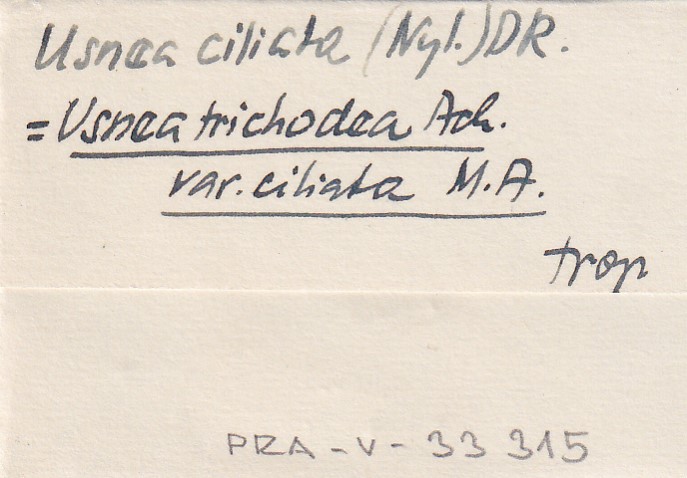 Usnea ciliata (Nyl.) DR.
= Usnea trichodea Ach.
var. ciliata M.A.
trop
PRA-V-33 315